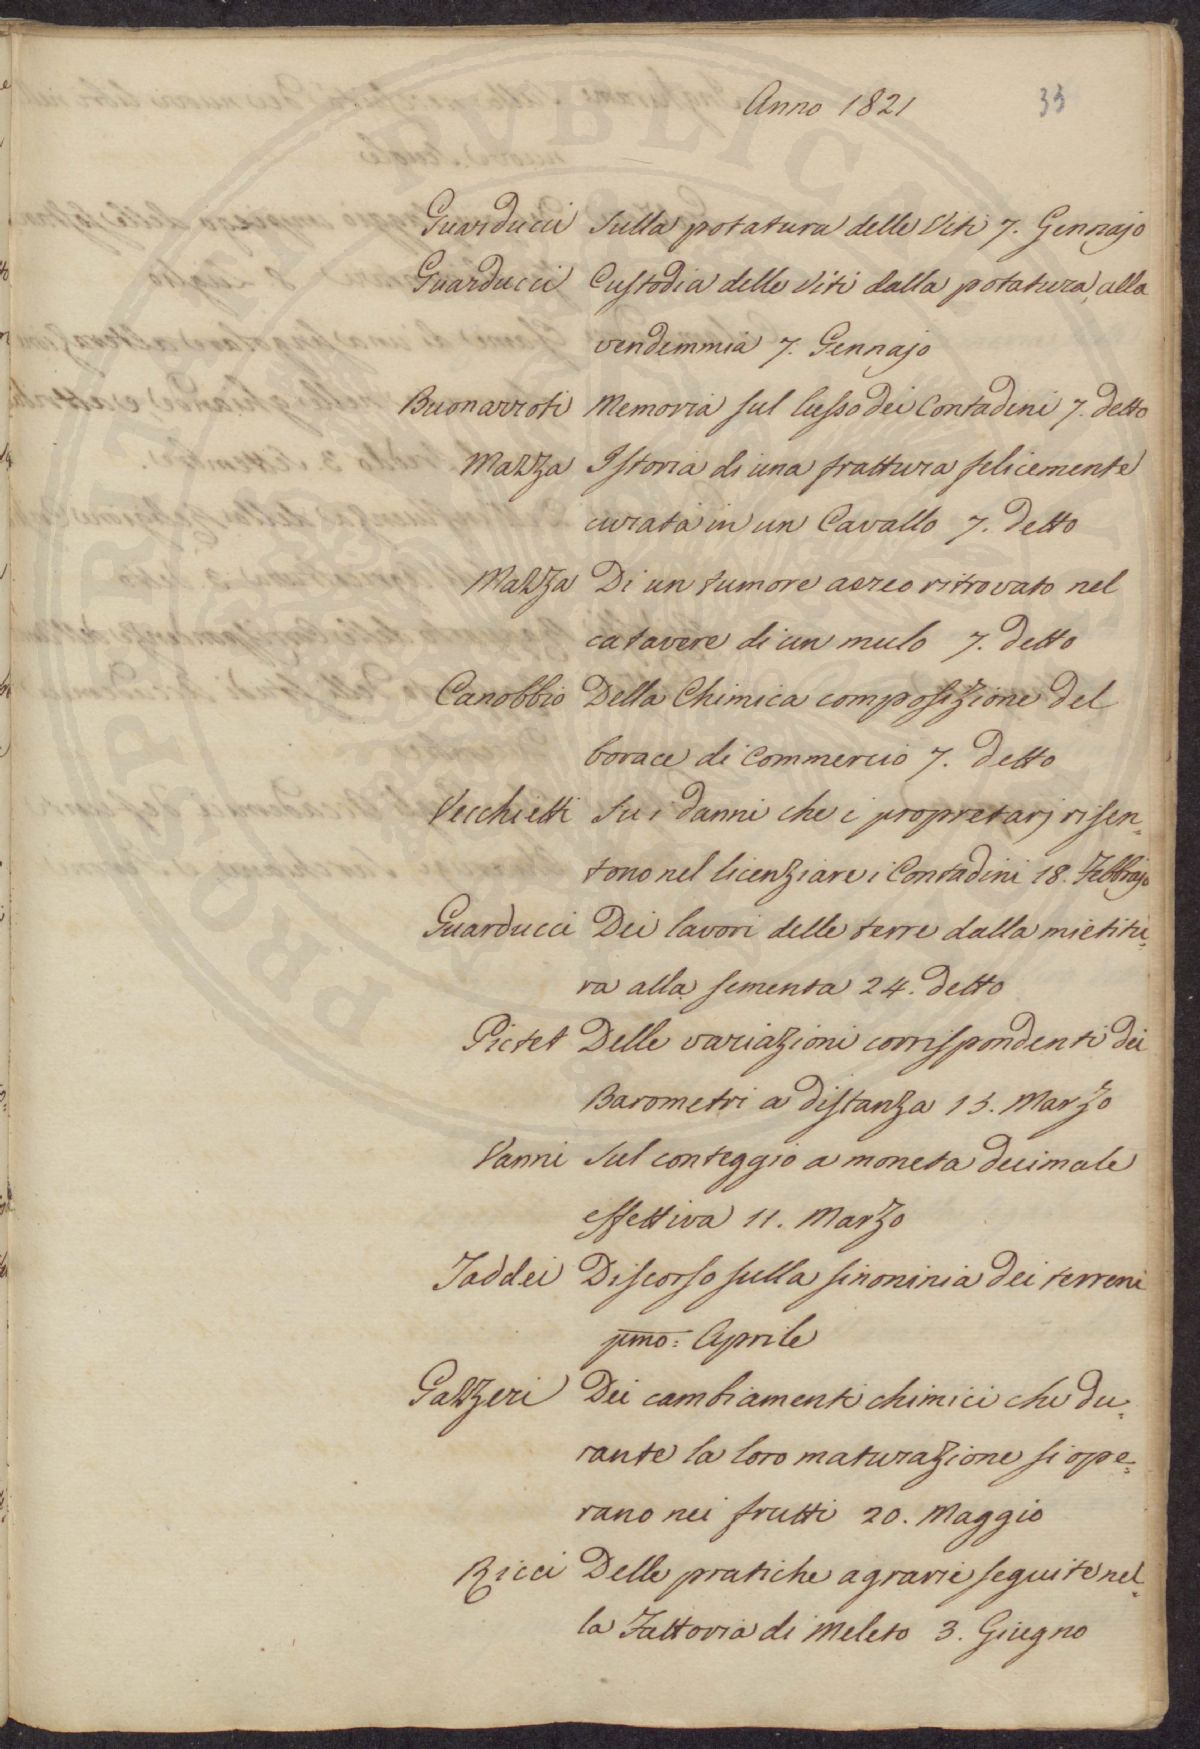 Anno 1821
33
Guarducci Sulla potatura delle Viti 7. Gennajo
Guarducci Custodia delle Viti dalla potatura alla
vendemmia 7. Gennajo
Buonarroti Memoria sul lusso dei Contadini 7. detto
Mazza Istoria di una frattura felicemente
curata in un Cavallo 7. detto
Mazza Di un tumore aereo ritrovato nel
catavere di un mulo 7. detto
Canobbio Della Chimica composizione del
borace di Commercio 7. detto
Vecchietti Su i danni che i propretarj risen=
tono nel licenziare i Contadini 18. Febbrajo
Guarducci Dei lavori delle terre dalla mietitu=
ra alla sementa 24. detto
Pictet Delle variazioni corrispondenti dei
Barometri a distanza 13. Marzo
Vanni Sul conteggio a moneta decimale
effettiva 11. Marzo
Taddei Discorso sulla sinonimia dei terreni
pmo: Aprile
Gazzeri Dei cambiamenti chimici che du=
rante la loro maturazione si ope=
rano nei frutti 20. Maggio
Ricci Delle pratiche agrarie seguite nel=
la Fattoria di Meleto 3. Giugno